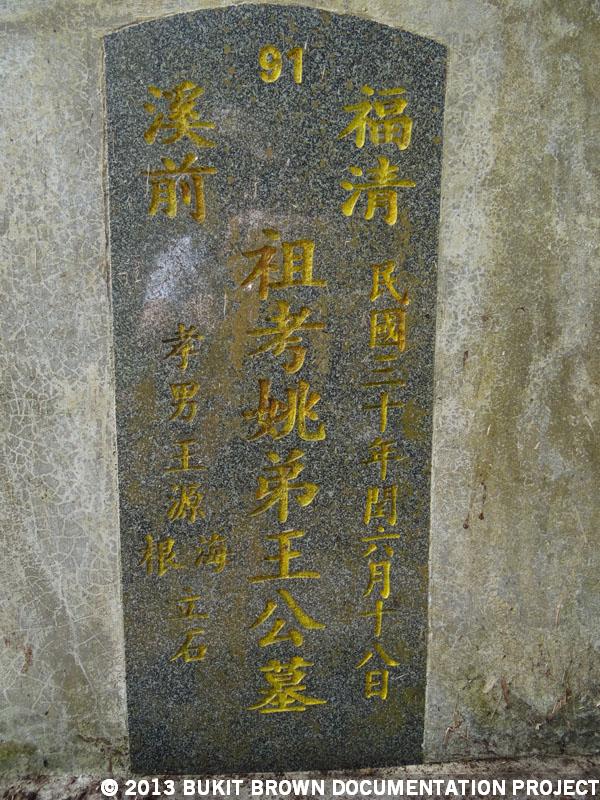 91
福清
民國三十年閏六月十八日
祖考姚弟王公墓
溪前
孝男王源海根立石
© 2013 BUKIT BROWN DOCUMENTATION PROJECT